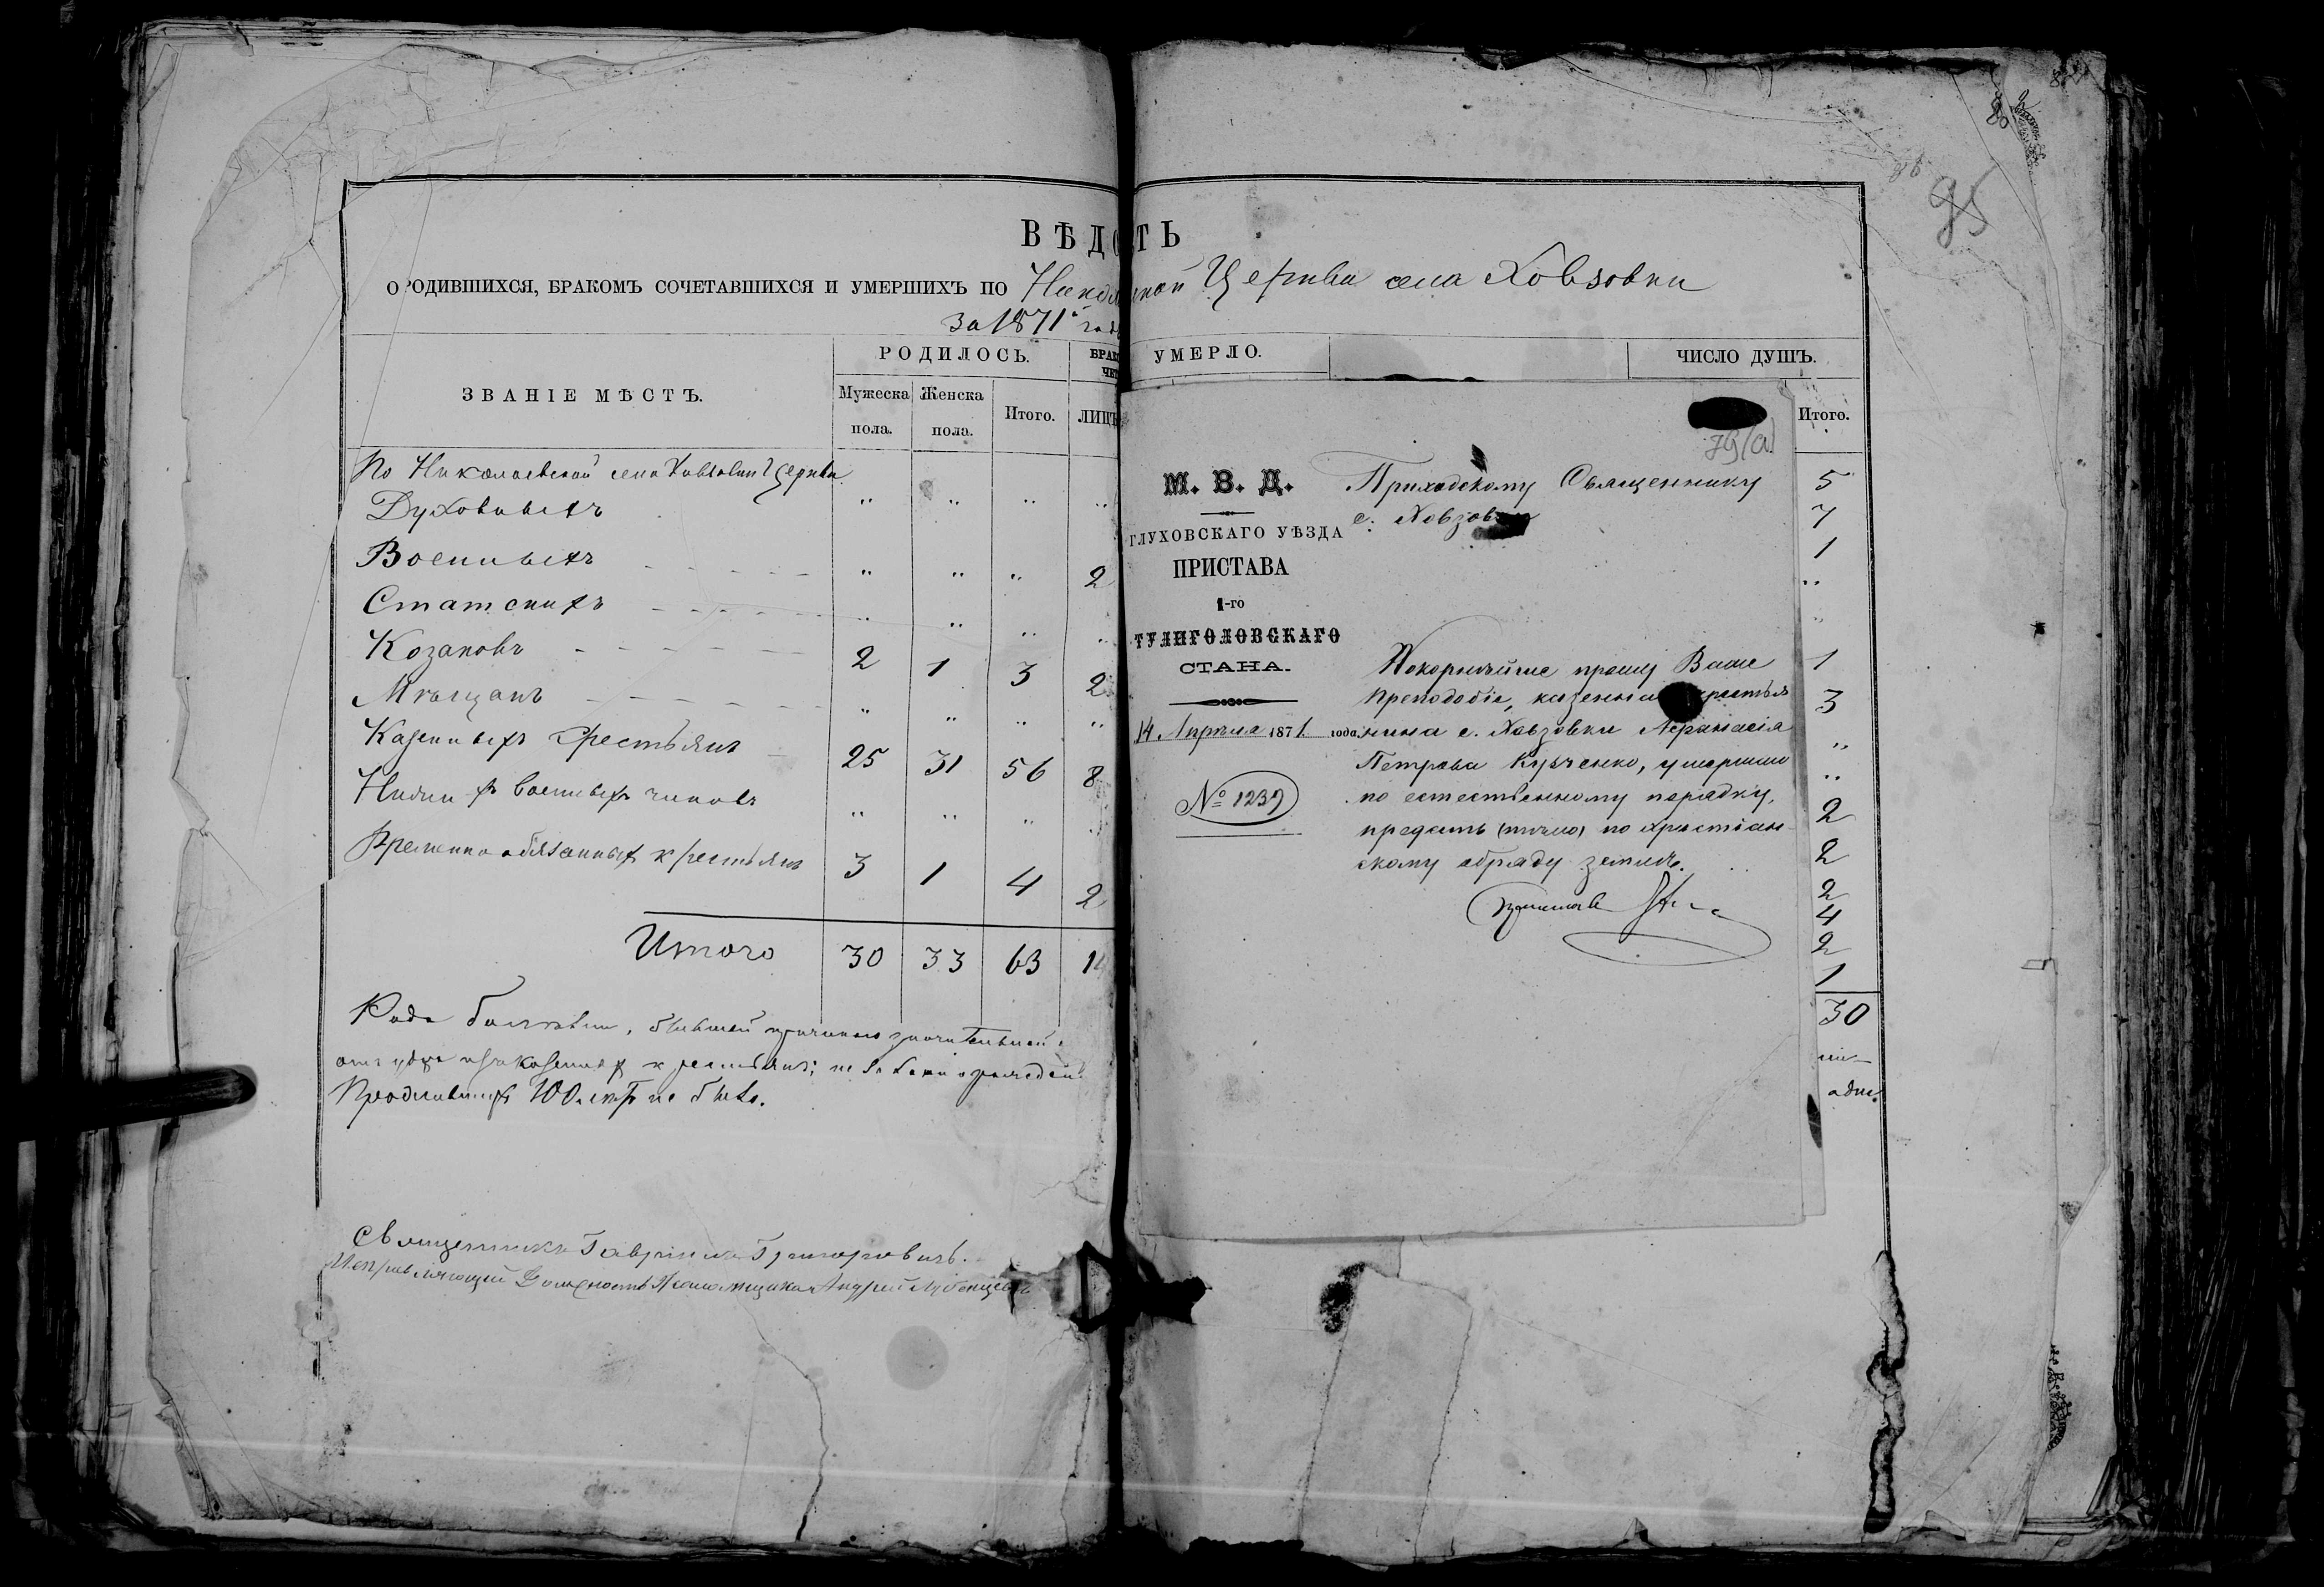 ВѢДО ТЬ
О РОДИВШИХСЯ, БРАКОМЪ СОЧЕТАВШИХСЯ И УМЕРШИХЪ ПО Никол ской Церкви села Ховзовки
За 1871й годъ
ЗВАНІЕ МѢСТЪ.
РОДИЛОСЬ.
Мужеска пола.
Женска пола.
Итого.
БРАК
ЧЕТ
ЛИЦЪ
УМЕРЛО.
ЧИСЛО ДУШЪ.
Итого.
По Николаевской села Ховзовки Церкви
Духовныхъ " " " "
Военныхъ " " " 2
Статскихъ " " " "
Козаковъ 2 1 3 2
Мѣщанъ " " " "
Казенныхъ крестьянъ 25 31 56 8
Нижнихъ военныхъ чиновъ " " " "
Временно обязанныхъ крестьянъ 3 1 4 2
Итого 30 33 63 14
Рода болѣзни, бывшей причиною значительной
казенныхъ крестьянъ; не
Прожившихъ 100 лѣтъ не было.
Священникъ Гавріилъ Григоровичъ.
Исправляющій Должность Псаломщика Андрей
95
86
79(а)
М. В. Д.
ГЛУХОВСКАГО УѢЗДА
ПРИСТАВА
1-го
ТУЛИГОЛОВСКАГО
СТАНА.
14 Апрѣля 1871 года
№ 1239
Приходскому Священнику
с. Ховзовки
Покорнѣйше прошу Ваше
Преподобіе, казенна крестья
нина с. Ховзовки Афанасія
Петрова Курченко, умершаго
по естественному порядку,
предать тѣло по христіан-
скому обряду землѣ.
Приставъ
5
7
1
"
"
1
3
"
"
2
2
2
4
2
1
30